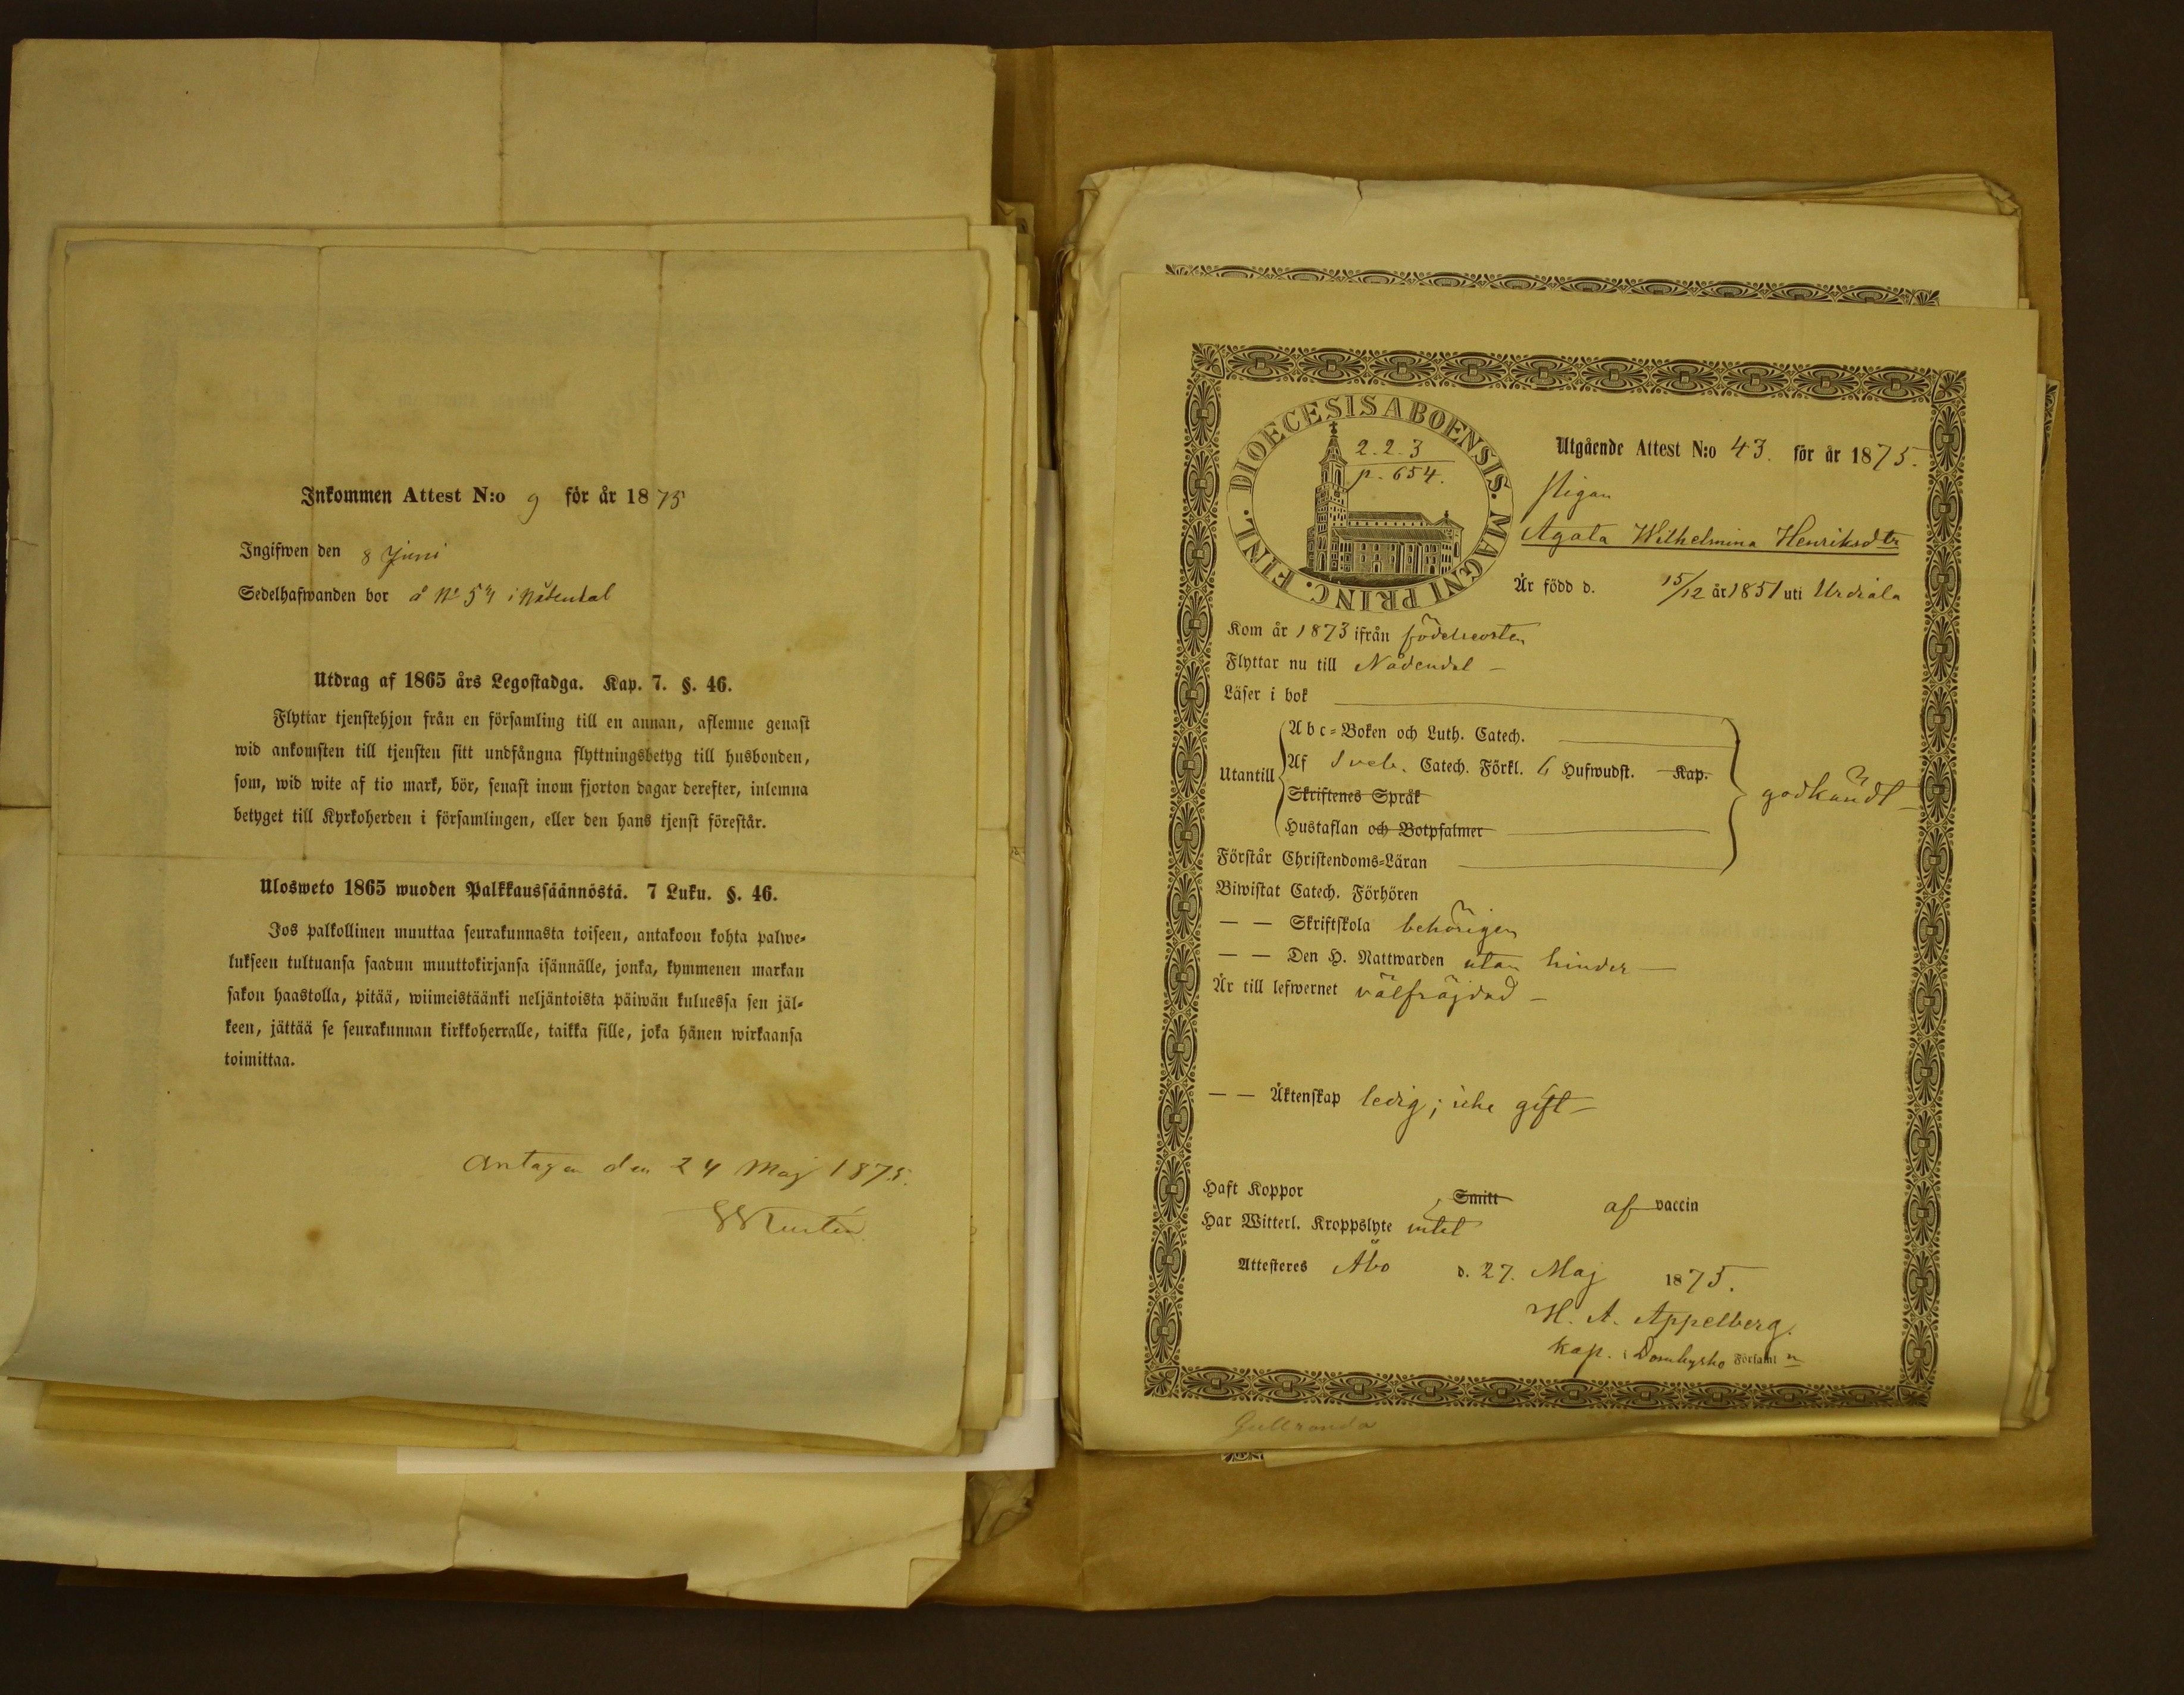 Inkommen Attest N:o 9 för år 1875
Ingifwen den 8 Juni
Sedelhafwanden bor å No 54 i Nådendal
Utdrag af 1865 års Legostadga. Kap. 7. §. 46.
Flyttar tjenstehjon från en församling till en annan, aflemne genast
wid ankomsten till tjensten sitt undfångna flyttningsbetyg till husbonden,
som, wid wite af tio mark, bör, senast inom fjorton dagar derefter, inlemna
betyget till Kyrkoherden i församlingen, eller den hans tjenst förestår.
Ulosweto 1865 wuoden Palkkaussäännöstä. 7 Luku. §. 46.
Jos palkollinen muuttaa seurakunnasta toiseen, antakoon kohta palwe-
lukseen tultuansa saadun muuttokirjansa isännälle, jonka, kymmenen markan
sakon haastolla, pitää, wiimeistäänki neljäntoista päiwän kuluessa sen jäl-
keen, jättää se seurakunnan kirkkoherralle, taikka sille, joka hänen wirkaansa
toimittaa.
Antagen den 24 Maj 1875.
DIOECESIS ABOENSIS. MAGNI PRINC. FINL.
2.2.3
p. 654.
Utgående Attest N:o 43. för år 1875.
Pigan
Agata Wilhelmina Henriksdtr
Är född d. 15/12 år 1851 uti Urdiala
Kom år 1873 ifrån födelseorten
Flyttar nu till Nådendal –
Läser i bok
Utantill
Abc-Boken och Luth. Catech.
Af Sveb. Catech. Förkl. 6 Hufwudst. Kap.
Skriftenes Språk
Hustaflan och Botpsalmer
godkändt –
Förstår Christendoms-Läran
Biwistat Catech. Förhören
— — Skriftskola behörigen
— — Den H. Nattwarden utan hinder –
Är till lefwernet välfräjdad –
— — Äktenskap ledig; icke gift –
Haft Koppor Smitt af vaccin
Har Witterl. Kroppslyte intet
Attesteres Åbo d. 27. Maj 1875.
H. A. Appelberg.
Kap. i Domkyrko Församl n